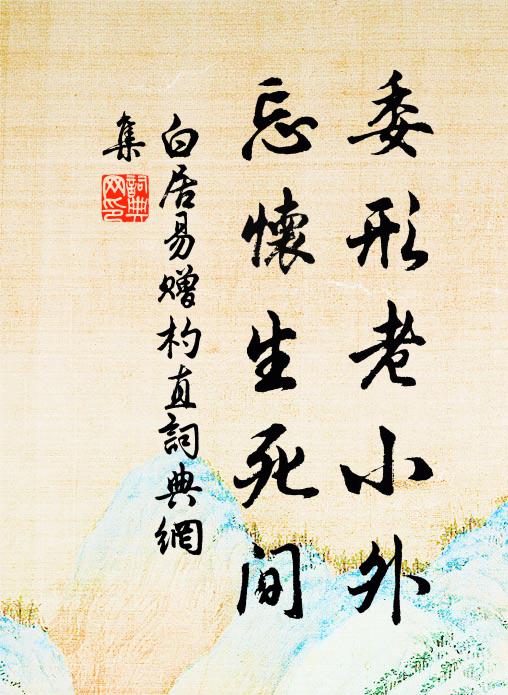 委形老小外
忘懷生死间
白居易赠杓直詞典網
集
詞典
网印